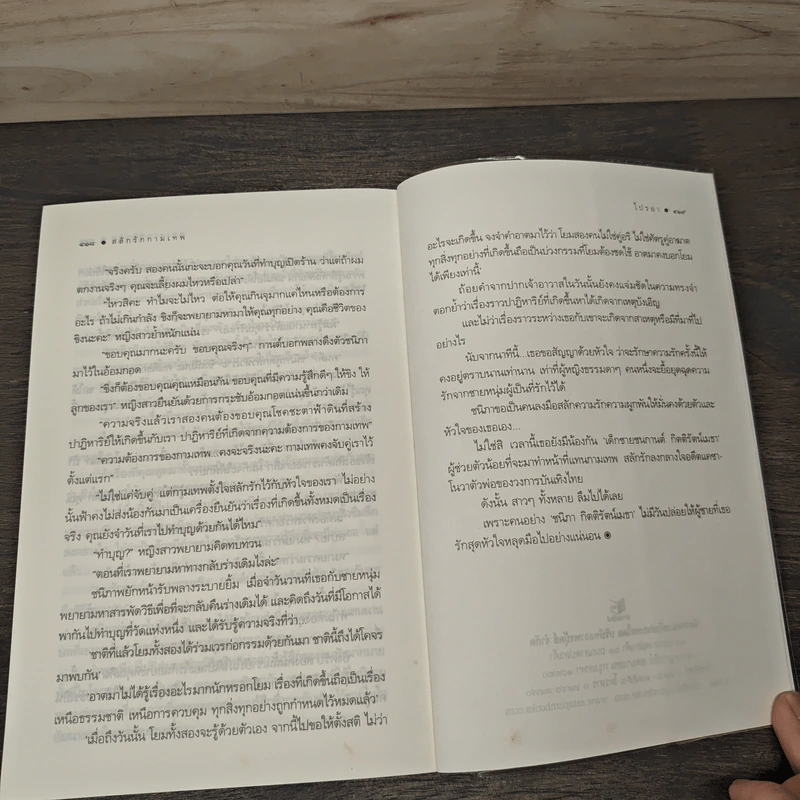 ๔๑๘ ● สลักรักกามเทพ
“จริงครับ สองคนนั้นกะจะบอกคุณวันที่ทำบุญเปิดร้าน ว่าแต่ถ้าผม
ตกงานจริงๆ คุณจะเลี้ยงผมไหวหรือเปล่า”
“ไหวสิคะ ทำไมจะไม่ไหว ต่อให้คุณกินจุมากแค่ไหนหรือต้องการ
อะไร ถ้าไม่เกินกำลัง ซิงก็จะพยายามหามาให้คุณทุกอย่าง คุณคือชีวิตของ
ซิงนะคะ” หญิงสาวย้ำหนักแน่น
“ขอบคุณมากนะครับ ขอบคุณจริงๆ” กานต์บอกพลางดึงตัวชนิภา
มาไว้ในอ้อมกอด
“ซิงก็ต้องขอบคุณคุณเหมือนกัน ขอบคุณที่มีความรู้สึกดีๆ ให้ซิง ให้
ลูกของเรา” หญิงสาวยืนยันด้วยการกระชับอ้อมกอดแน่นขึ้นกว่าเดิม
“ความจริงแล้วเราสองคนต้องขอบคุณโชคชะตาฟ้าดินที่สร้าง
ปาฏิหาริย์ให้เกิดขึ้นกับเรา ปาฏิหาริย์ที่เกิดจากความต้องการของกามเทพ”
“ความต้องการของกามเทพ...คงจะจริงนะคะ กามเทพคงจับคู่เราไว้
ตั้งแต่แรก”
“ไม่ใช่แค่จับคู่ แต่กามเทพตั้งใจสลักรักไว้กับหัวใจของเรา ไม่อย่าง
นั้นฟ้าคงไม่ส่งน้องกันมาเป็นเครื่องยืนยันว่าเรื่องที่เกิดขึ้นทั้งหมดเป็นเรื่อง
จริง คุณยังจำวันที่เราไปทำบุญด้วยกันได้ไหม”
“ทำบุญ?” หญิงสาวพยายามคิดทบทวน
“ตอนที่เราพยายามหาทางกลับร่างเดิมไงล่ะ”
ชนิภาพยักหน้ารับพลางระบายยิ้ม เมื่อจำวันวานที่เธอกับชายหนุ่ม
พยายามหาสารพัดวิธีเพื่อที่จะกลับคืนร่างเดิมได้ และคิดถึงวันที่มีโอกาสได้
พากันไปทำบุญที่วัดแห่งหนึ่ง และได้รับรู้ความจริงที่ว่า...
‘ชาติที่แล้วโยมทั้งสองได้ร่วมเวรก่อกรรมด้วยกันมา ชาตินี้ถึงได้โคจร
มาพบกัน’
‘อาตมาไม่ได้รู้เรื่องอะไรมากนักหรอกโยม เรื่องที่เกิดขึ้นถือเป็นเรื่อง
เหนือธรรมชาติ เหนือการควบคุม ทุกสิ่งทุกอย่างถูกกำหนดไว้หมดแล้ว’
‘เมื่อถึงวันนั้น โยมทั้งสองจะรู้ด้วยตัวเอง จากนี้ไปขอให้ตั้งสติ ไม่ว่า
โปรยา ● ๔๑๙
อะไรจะเกิดขึ้น จงจำคำอาตมาไว้ว่า โยมสองคนไม่ใช่คู่อริ ไม่ใช่ศัตรูคู่อาฆาต
ทุกสิ่งทุกอย่างที่เกิดขึ้นถือเป็นบ่วงกรรมที่โยมต้องชดใช้ อาตมาคงบอกโยม
ได้เพียงเท่านี้’
ถ้อยคำจากปากเจ้าอาวาสในวันนั้นยังคงแจ่มชัดในความทรงจำ
ตอกย้ำว่าเรื่องราวปาฏิหาริย์ที่เกิดขึ้นหาได้เกิดจากเหตุบังเอิญ
และไม่ว่าเรื่องราวระหว่างเธอกับเขาจะเกิดจากสาเหตุหรือมีที่มาที่ไป
อย่างไร
นับจากนาทีนี้...เธอขอสัญญาด้วยหัวใจ ว่าจะรักษาความรักครั้งนี้ให้
คงอยู่ตราบนานเท่านาน เท่าที่ผู้หญิงธรรมดาๆ คนหนึ่งจะยื้อยุดฉุดความ
รักจากชายหนุ่มผู้เป็นที่รักไว้ได้
ชนิภาขอเป็นคนลงมือสลักความรักความผูกพันให้มั่นคงด้วยตัวและ
หัวใจของเธอเอง...
ไม่ใช่สิ เวลานี้เธอยังมีน้องกัน ‘เด็กชายชนกานต์ กิตติรัตน์เมธา’
ผู้ช่วยตัวน้อยที่จะมาทำหน้าที่แทนกามเทพ สลักรักลงกลางใจอดีตแคซา-
โนวาตัวพ่อของวงการบันเทิงไทย
ดังนั้น สาวๆ ทั้งหลาย ลืมไปได้เลย
เพราะคนอย่าง ‘ชนิภา กิตติรัตน์เมธา’ ไม่มีวันปล่อยให้ผู้ชายที่เธอ
รักสุดหัวใจหลุดมือไปอย่างแน่นอน ●